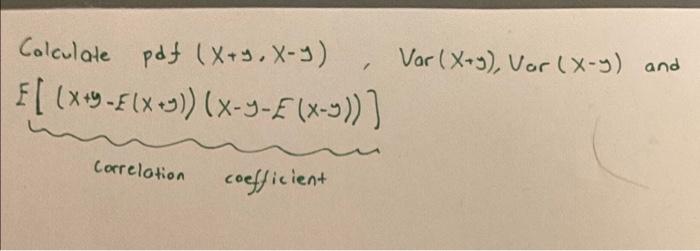 Calculate pdf (X+y, X-y) , Var(X+y), Var(X-y) and
E[(X+y-E(X+y))(X-y-E(X-y))]
Correlation coefficient